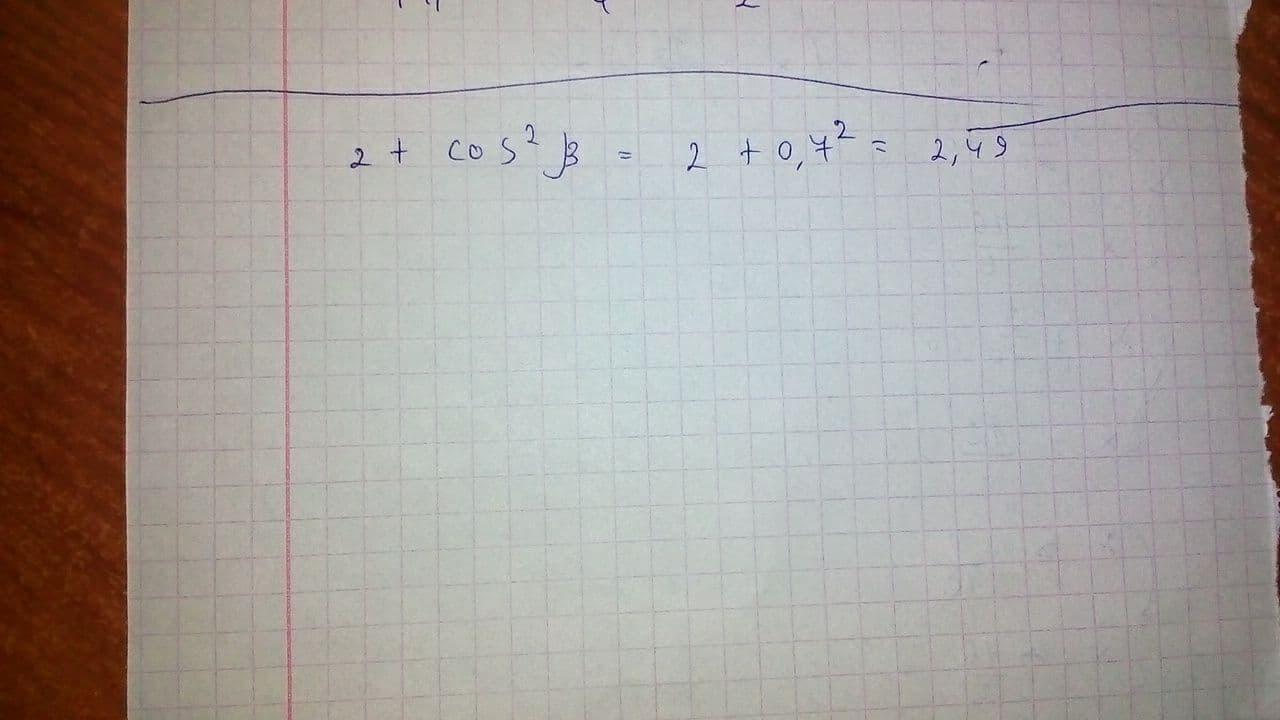 2 + cos² β = 2 + 0,7² = 2,49